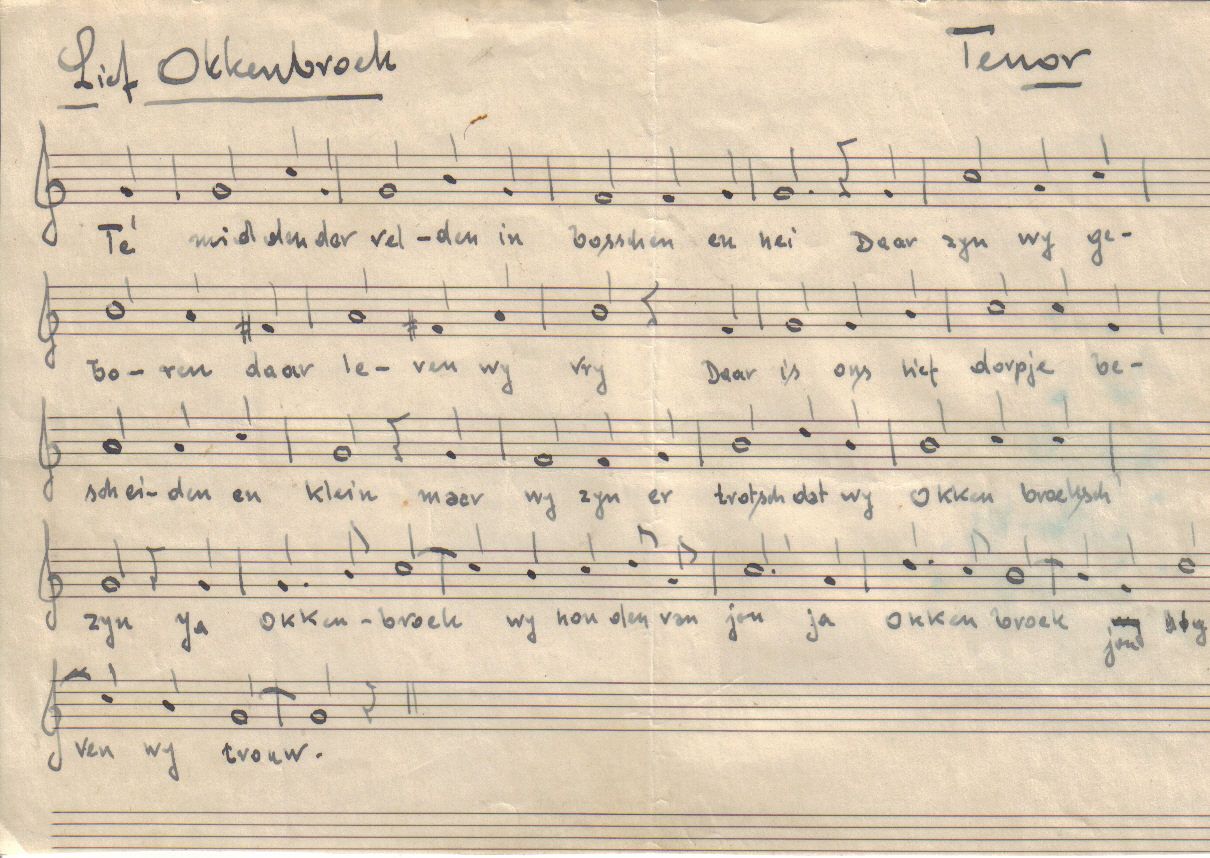 Lief Okkenbroek
Tenor
Te midden der vel-den in bosschen en hei Daar zyn wy ge-
bo-ren daar le-ven wy vry Daar is ons lief dorpje be-
schei-den en klein maar wy zyn er trotsch dat wy Okken broeksch
zyn Ja Okken-broek wy houden van jou ja Okken broek jou bly
ven wy trouw.